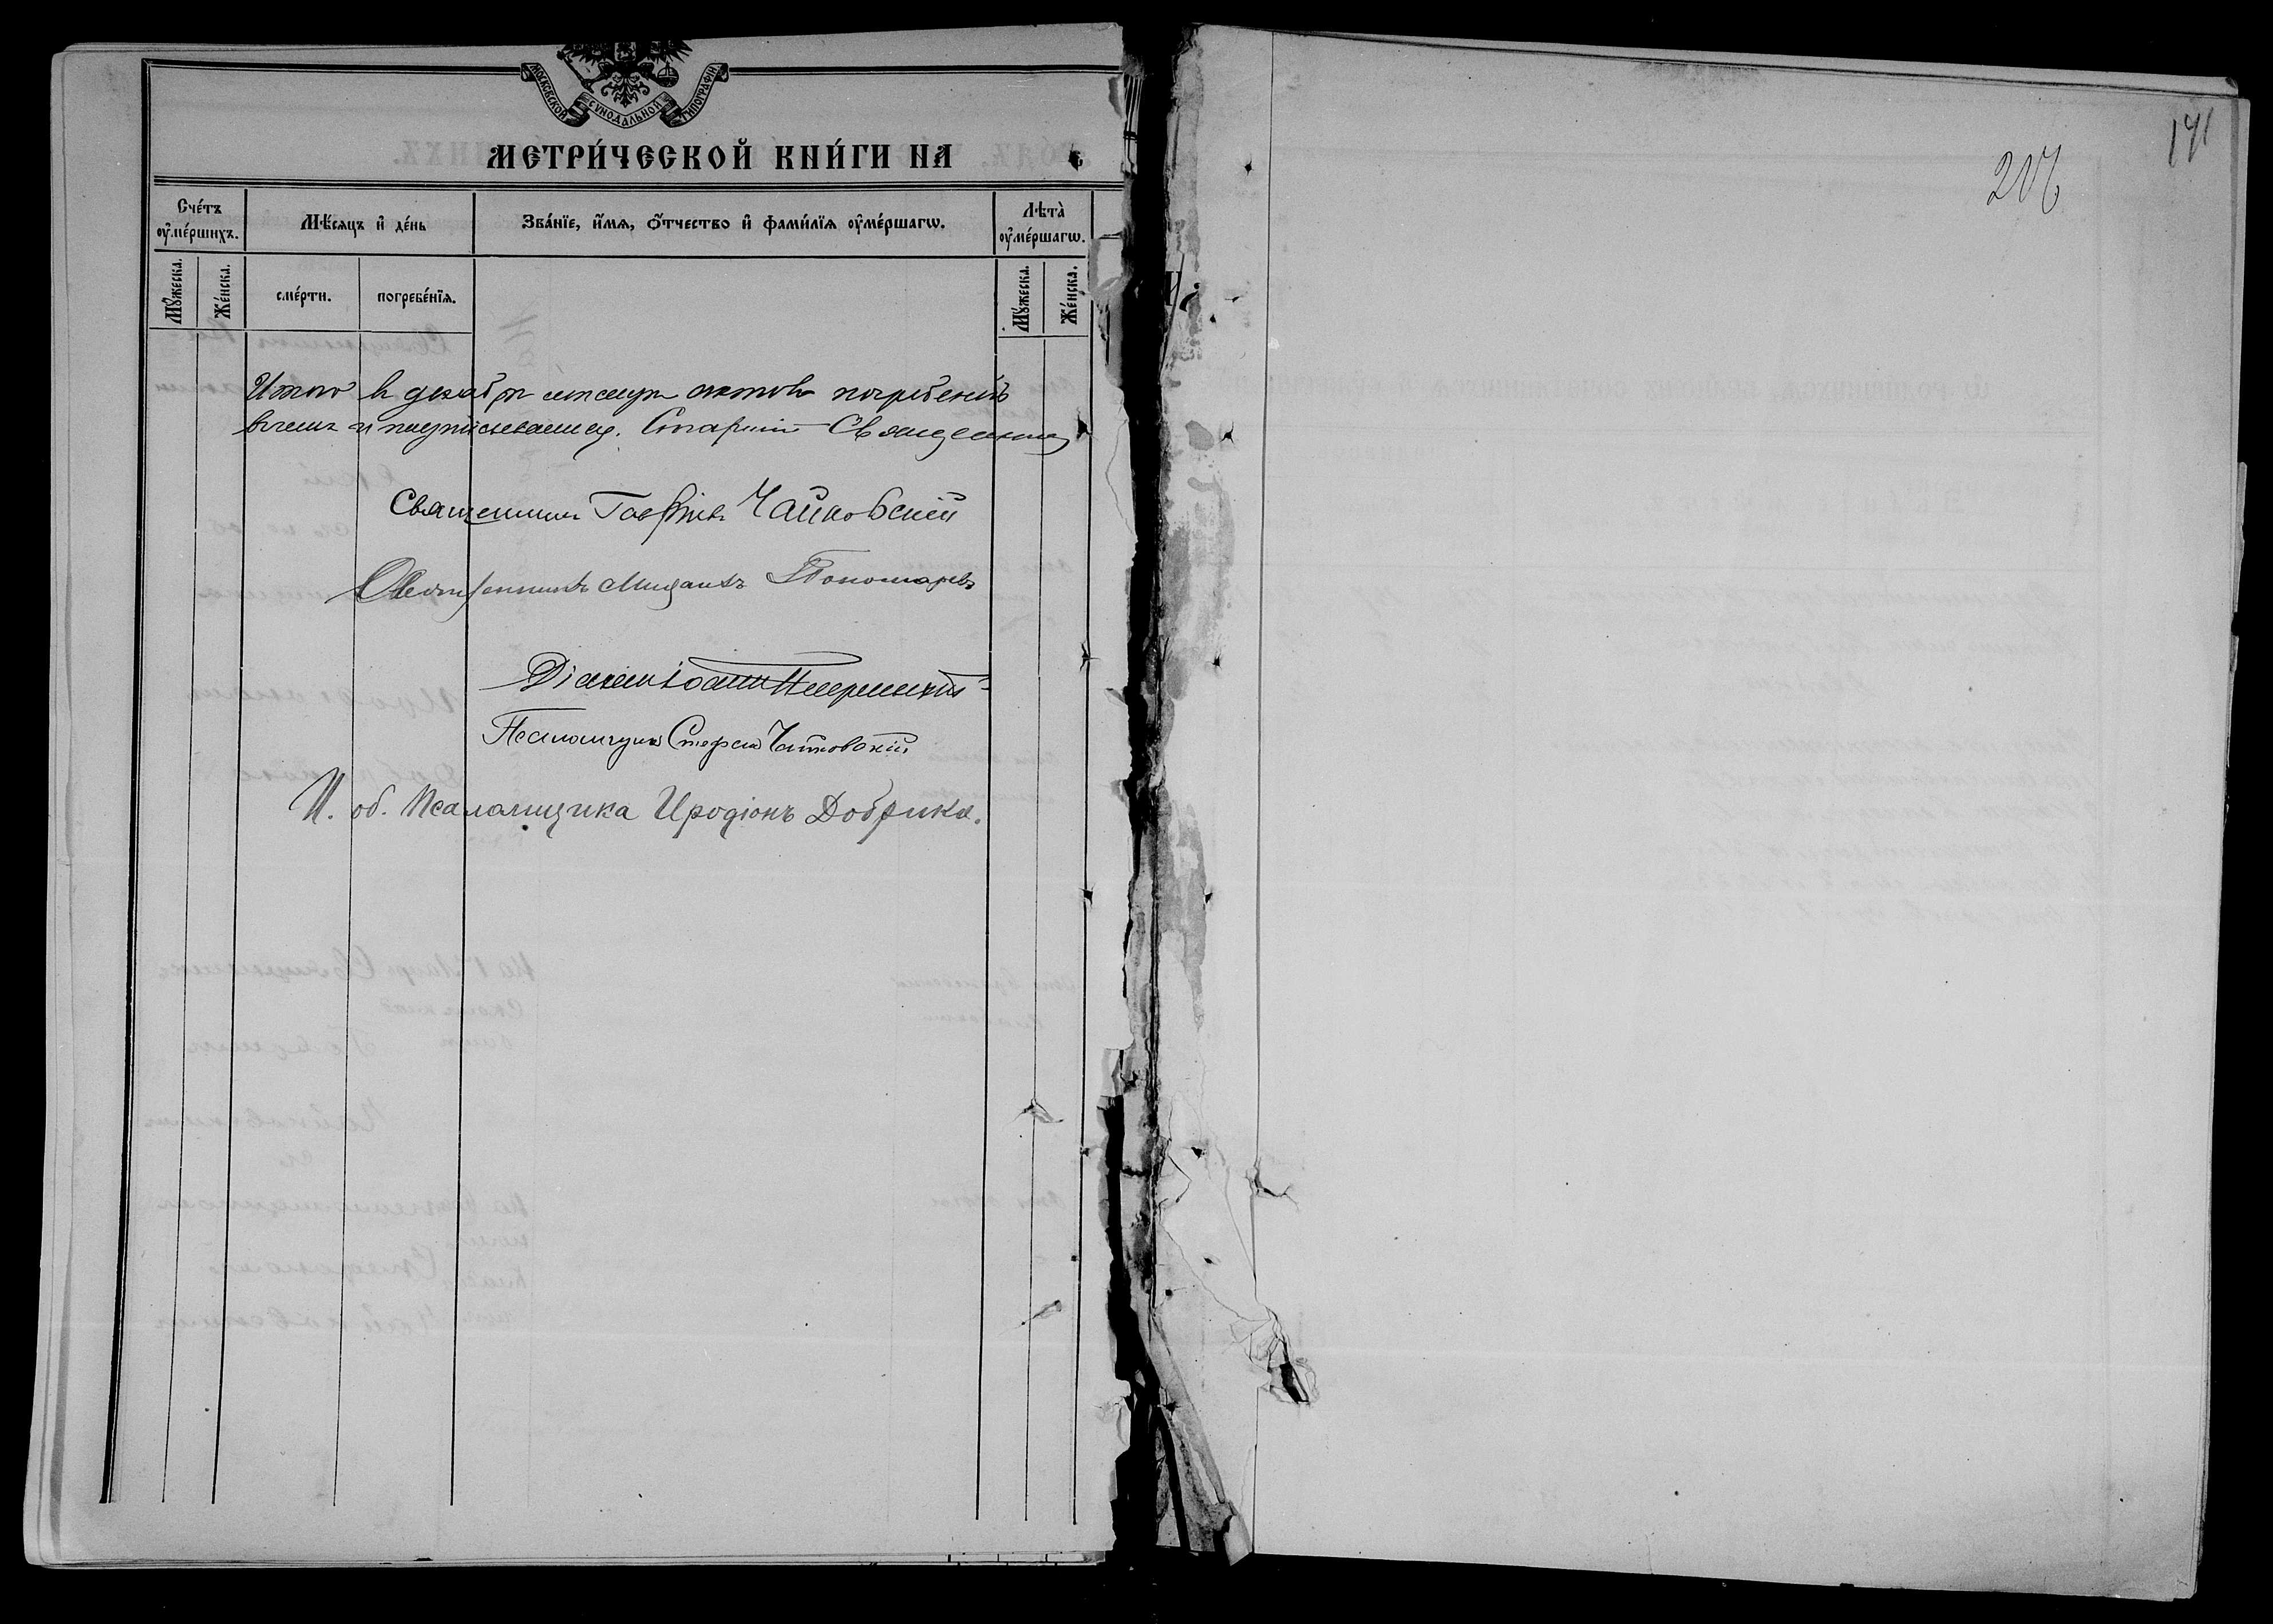 МОСКОВСКОЙ СѴНОДАЛЬНОЙ ТИПОГРАФІИ
МЕТРИ́ЧЕСКОЙ КНИ́ГИ НА
Сче́тъ ᲂу҆ме́ршихъ.
Мѣ́сяцъ и҆ де́нь
Зва́нїе, и҆́мѧ, ѻ҆́тчество и҆ фами́лїѧ ᲂу҆ме́ршагѡ.
Лѣта̀ ᲂу҆ме́ршагѡ.
Мꙋ́жеска.
Же́нска.
сме́рти.
погребе́нїѧ.
Мꙋ́жеска.
Же́нска.
Итого в декабрѣ мѣсяцѣ актов погребенiй
и подписываемся. Старшiй Священник
Священникъ Гавріилъ Чайковскій
Священникъ Михаилъ Пономаревъ
Діаконъ Іоаннъ
Псаломщикъ Стефанъ Чайковскій
И. об. Псаломщика Иродіонъ Добрика.
207
191